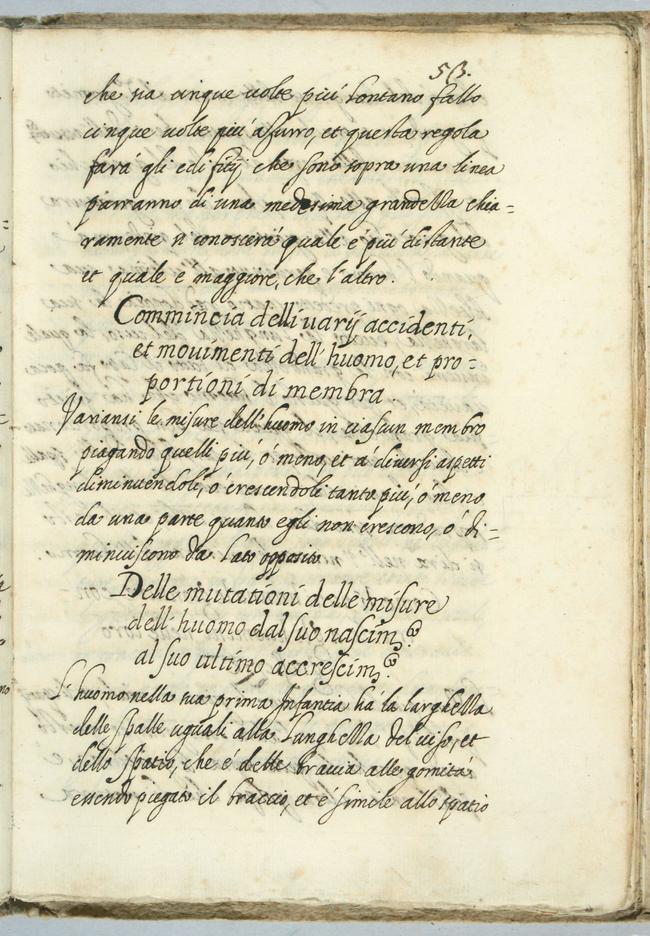 53.
che sia cinque volte più lontano fallo
cinque volte più azurro, et questa regola
farà gli edifitij che sono sopra una linea
parranno di una medesima grandezza chia=
ramente si conoscerà quale è più distante
et quale e maggiore, che l'altro.
Commincia delli varij accidenti,
et movimenti dell'huomo, et pro=
portioni di membra.
Variansi le misure dell'huomo in ciascun membro
piegando quelli più, ò meno, et à diversi aspetti
diminuendoli, ò crescendoli tanto più, ò meno
da una parte quanto egli non crescono, ò di=
minuiscono da lato opposito
Delle mutationi delle misure
dell'huomo dal suo nascim.to
al suo ultimo accrescim.to
L'huomo nella sua prima Infantia hà la larghezza
delle spalle uguali alla lunghezza del viso, et
dello spatio, che è delle braccia alle gomita
essendo piegato il braccio, et è simile allo spatio